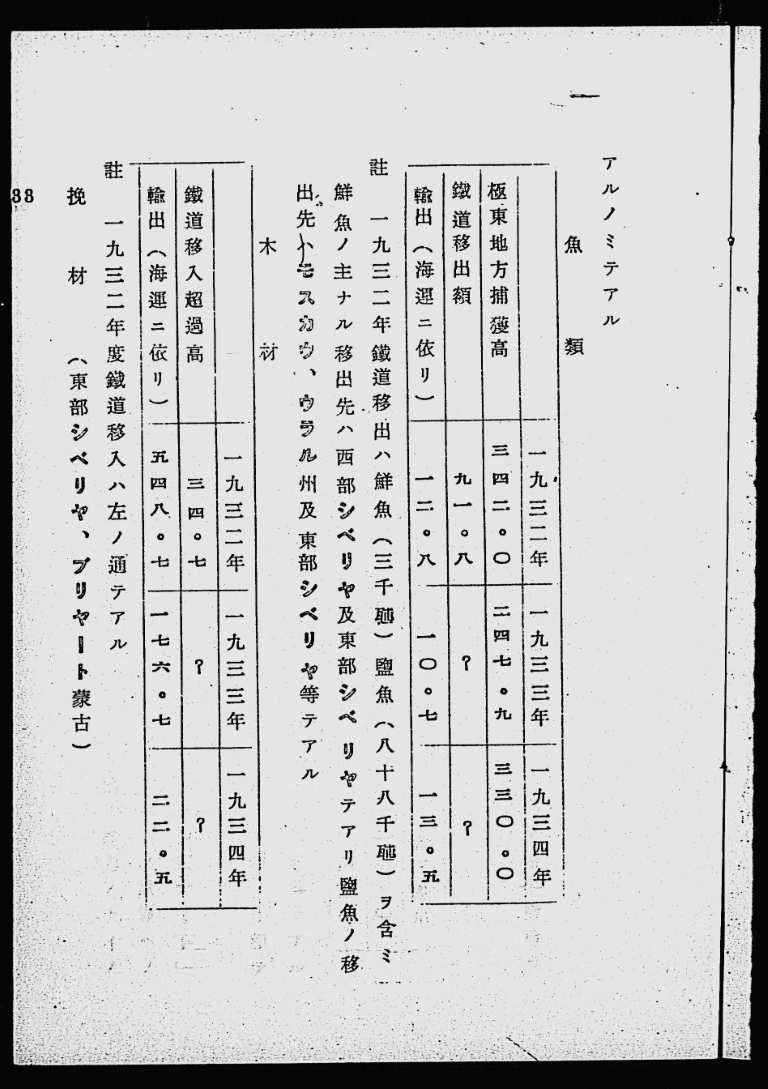 アルノミテアル
魚類
一九三二年 一九三三年 一九三四年
極東地方捕獲高 三四二。〇 二四七。九 三三〇。〇
鐵道移出額 九一。八 ? ?
輸出(海運ニ依リ) 一二。八 一〇。七 一三。五
註 一九三二年鐵道移出ハ鮮魚(三千瓲)鹽魚(八十八千瓲)ヲ含ミ
鮮魚ノ主ナル移出先ハ西部シベリヤ及東部シベリヤテアリ鹽魚ノ移
出先ハモスカウ、ウラル州及東部シベリヤ等テアル
木材
一九三二年 一九三三年 一九三四年
鐵道移入超過高 三四。七 ? ?
輸出(海運ニ依リ) 五四八。七 一七六。七 二二。五
註 一九三二年度鐵道移入ハ左ノ通テアル
挽材 (東部シベリヤ、ブリヤート蒙古)
38